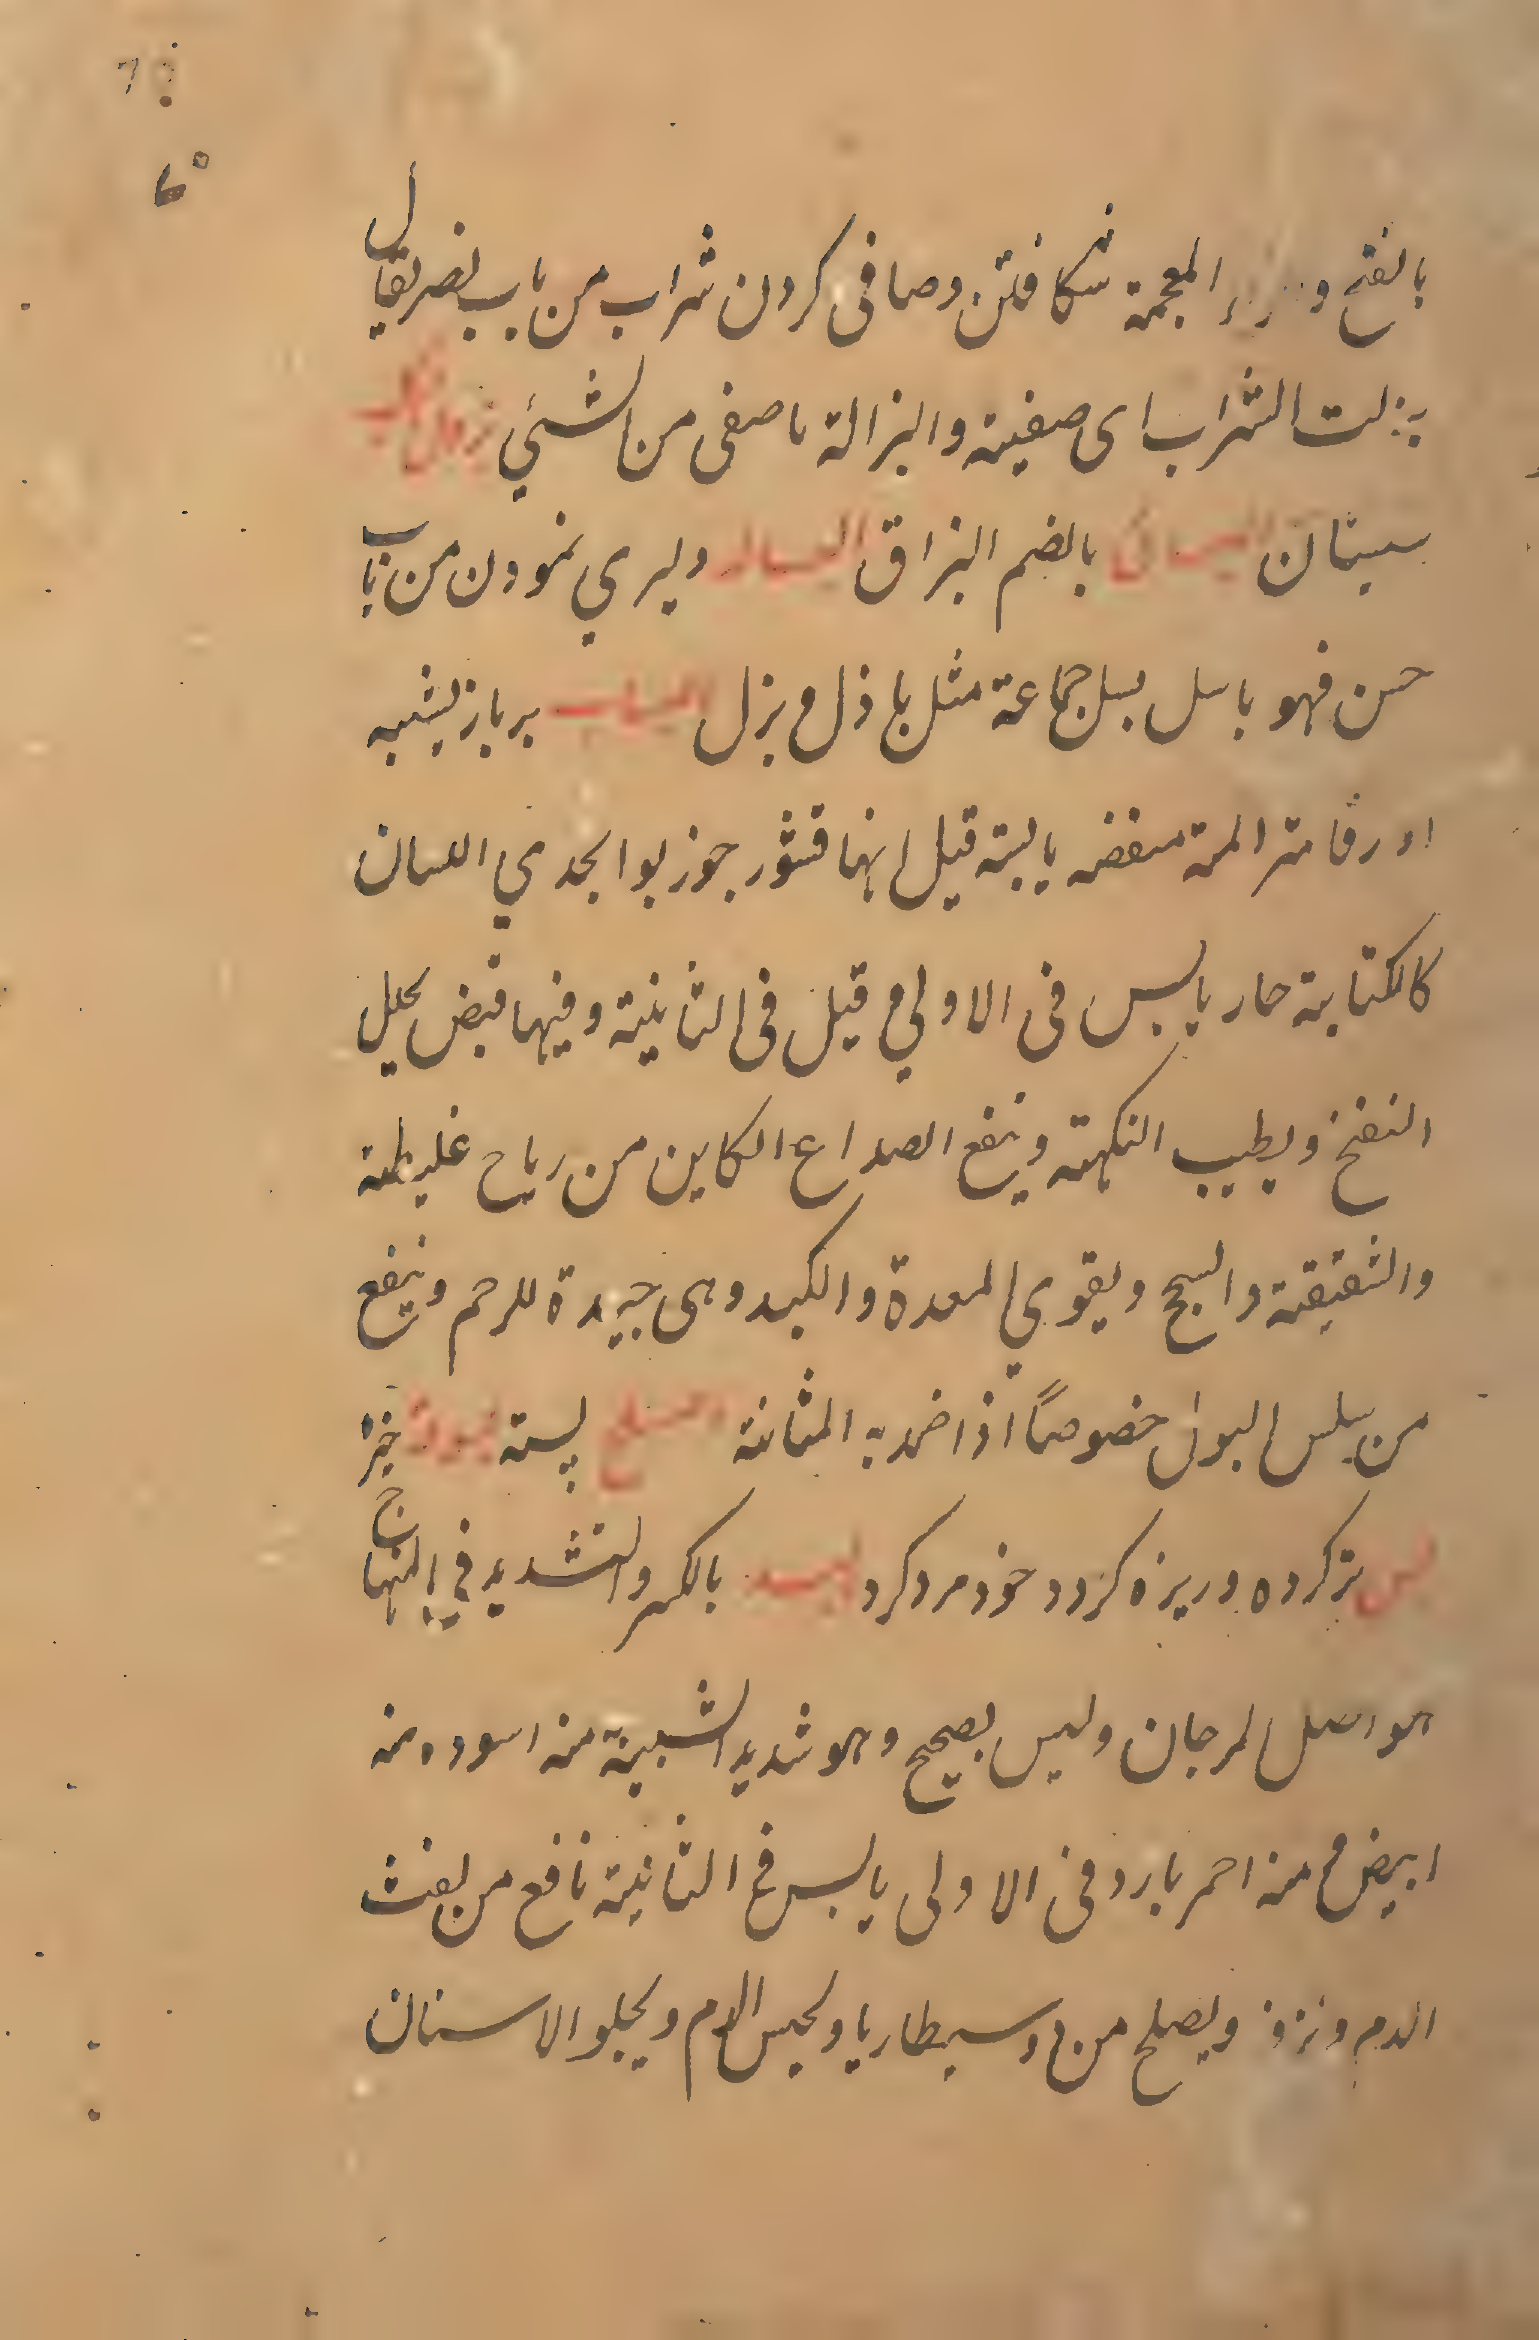 بالفتح و زاء المعجمة شكافتن وصافى كردن شراب من باب نصر يقال
بزلت الشراب اى صفيته والبزالة ما صفى من الشئي
سيستان بالضم البزاق دليري نمودن من باب
حسن فهو باسل بسل جماعة مثل باذل و بزل بزباز يشبه
اورقا متراكمة يابسة قيل انها قشور جوز بوا يحدي اللسان
كالكبابة حار يابس فى الاولي و قيل فى الثانية وفيها قبض يحلل
النفخ ويطيب النكهة وينفع الصداع الكاين من رياح غليظة
والشقيقة والسحج ويقوي المعدة والكبد وهى جيدة للرحم وينفع
من سلس البول خصوصاً اذا ضمد به المثانة پسته خبز
تر كرده وريزه كردد خود مرد كرد بالكسر والتشديد في المنهاج
هو اصل المرجان وليس بصحيح وهو شديد الشبه منه اسود ومنه
ابيض و منه احمر بارد فى الاولى يابس فى الثانية نافع من نفث
الدم ونزف ويصلح من دوسيطاريا ويحبس الدم ويجلو الاسنان